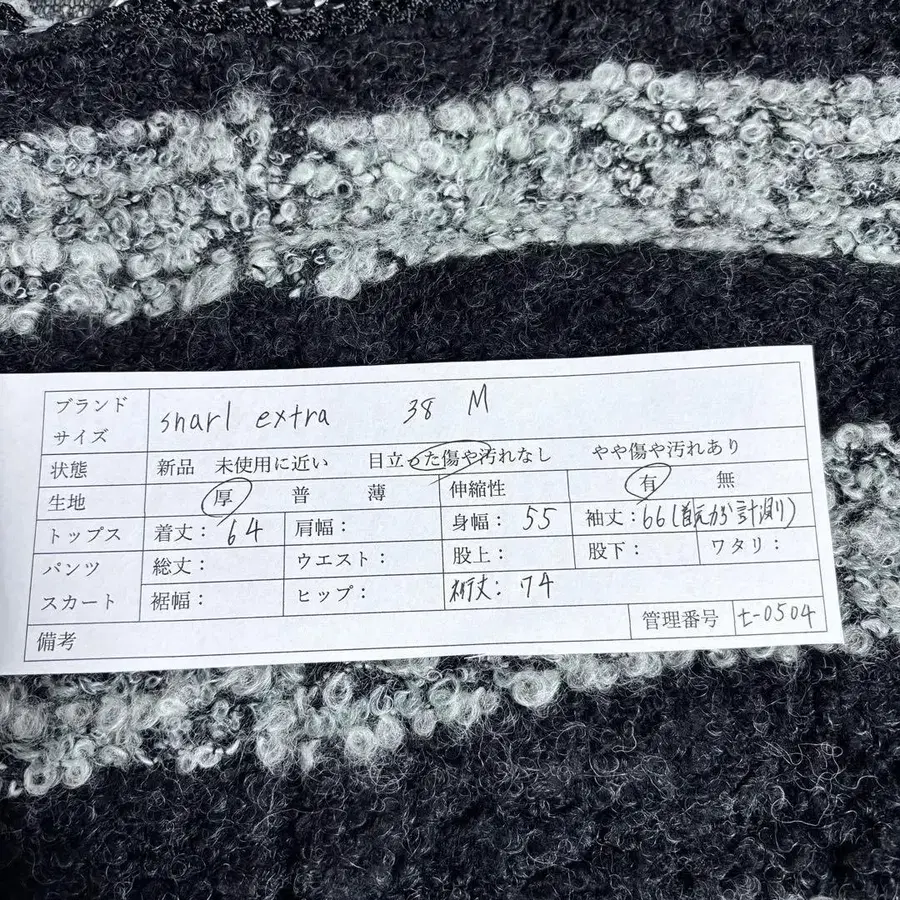 ブランド
サイズ
snarl extra 38 M
状態 新品 未使用に近い 目立った傷や汚れなし やや傷や汚れあり
生地 厚 普 薄 伸縮性 有 無
トップス 着丈: 64 肩幅: 身幅: 55 袖丈: 66(首元から計測り)
パンツ 総丈: ウエスト: 股上: 股下: ワタリ:
スカート 裾幅: ヒップ: 裄丈: 74
備考 管理番号 t-0504